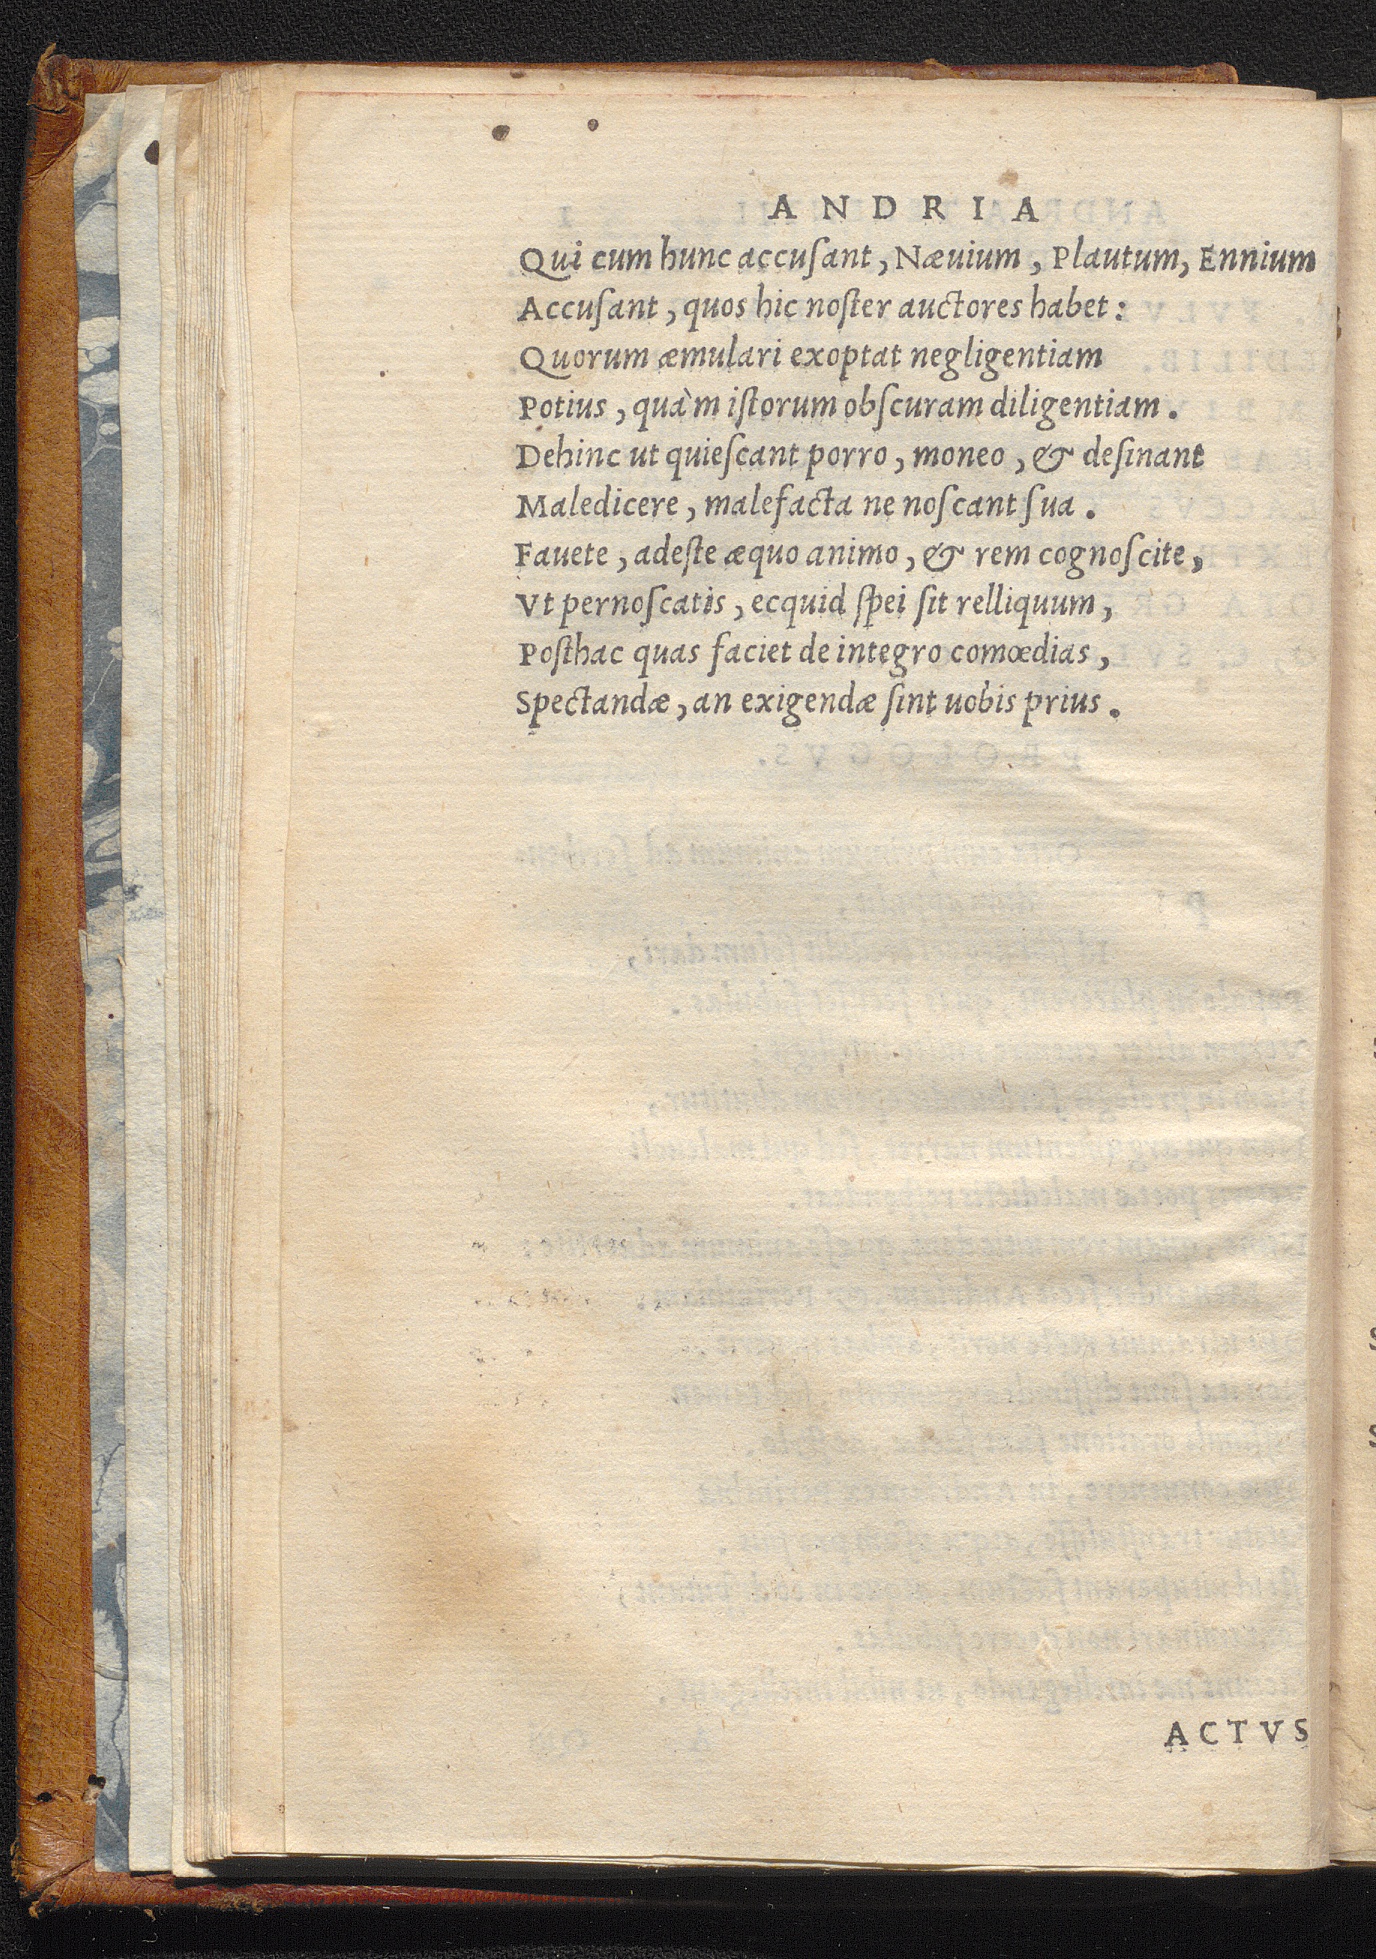 ANDRIA
Qui cum hunc accuſant, Næuium, Plautum, Ennium
Accuſant, quos hic noſter auctores habet:
Quorum æmulari exoptat negligentiam
Potius, quàm iſtorum obſcuram diligentiam.
Dehinc ut quieſcant porro, moneo, & deſinant
Maledicere, malefacta ne noſcant ſua.
Fauete, adeſte æquo animo, & rem cognoſcite,
Vt pernoſcatis, ecquid ſpei ſit relliquum,
Poſthac quas faciet de integro comœdias,
Spectandæ, an exigendæ ſint uobis prius.
ACTVS